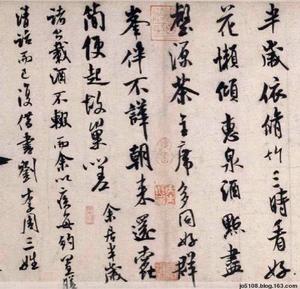 半歲依脩竹三時看好
花懶傾惠泉酒點盡
壑源茶主席多同好群
峯伴不譁朝來還蠹
簡便起故巢嗟 余居半歲
諸公載酒不輟而余以疾每約置膳
清話而已復借書劉李周三姓
jo5108.blog.163.com